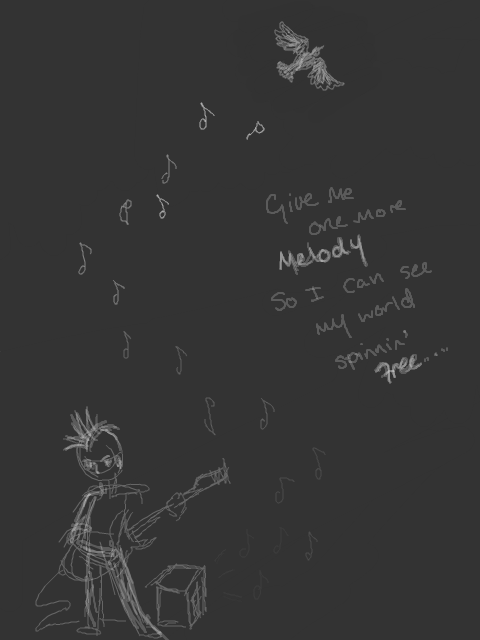 Give Me
one more
Melody
So I can see
my world
spinnin'
Free.....